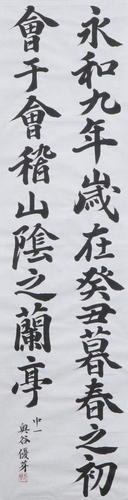 永和九年歳在癸丑暮春之初
會于會稽山陰之蘭亭
中一
奥谷優芽